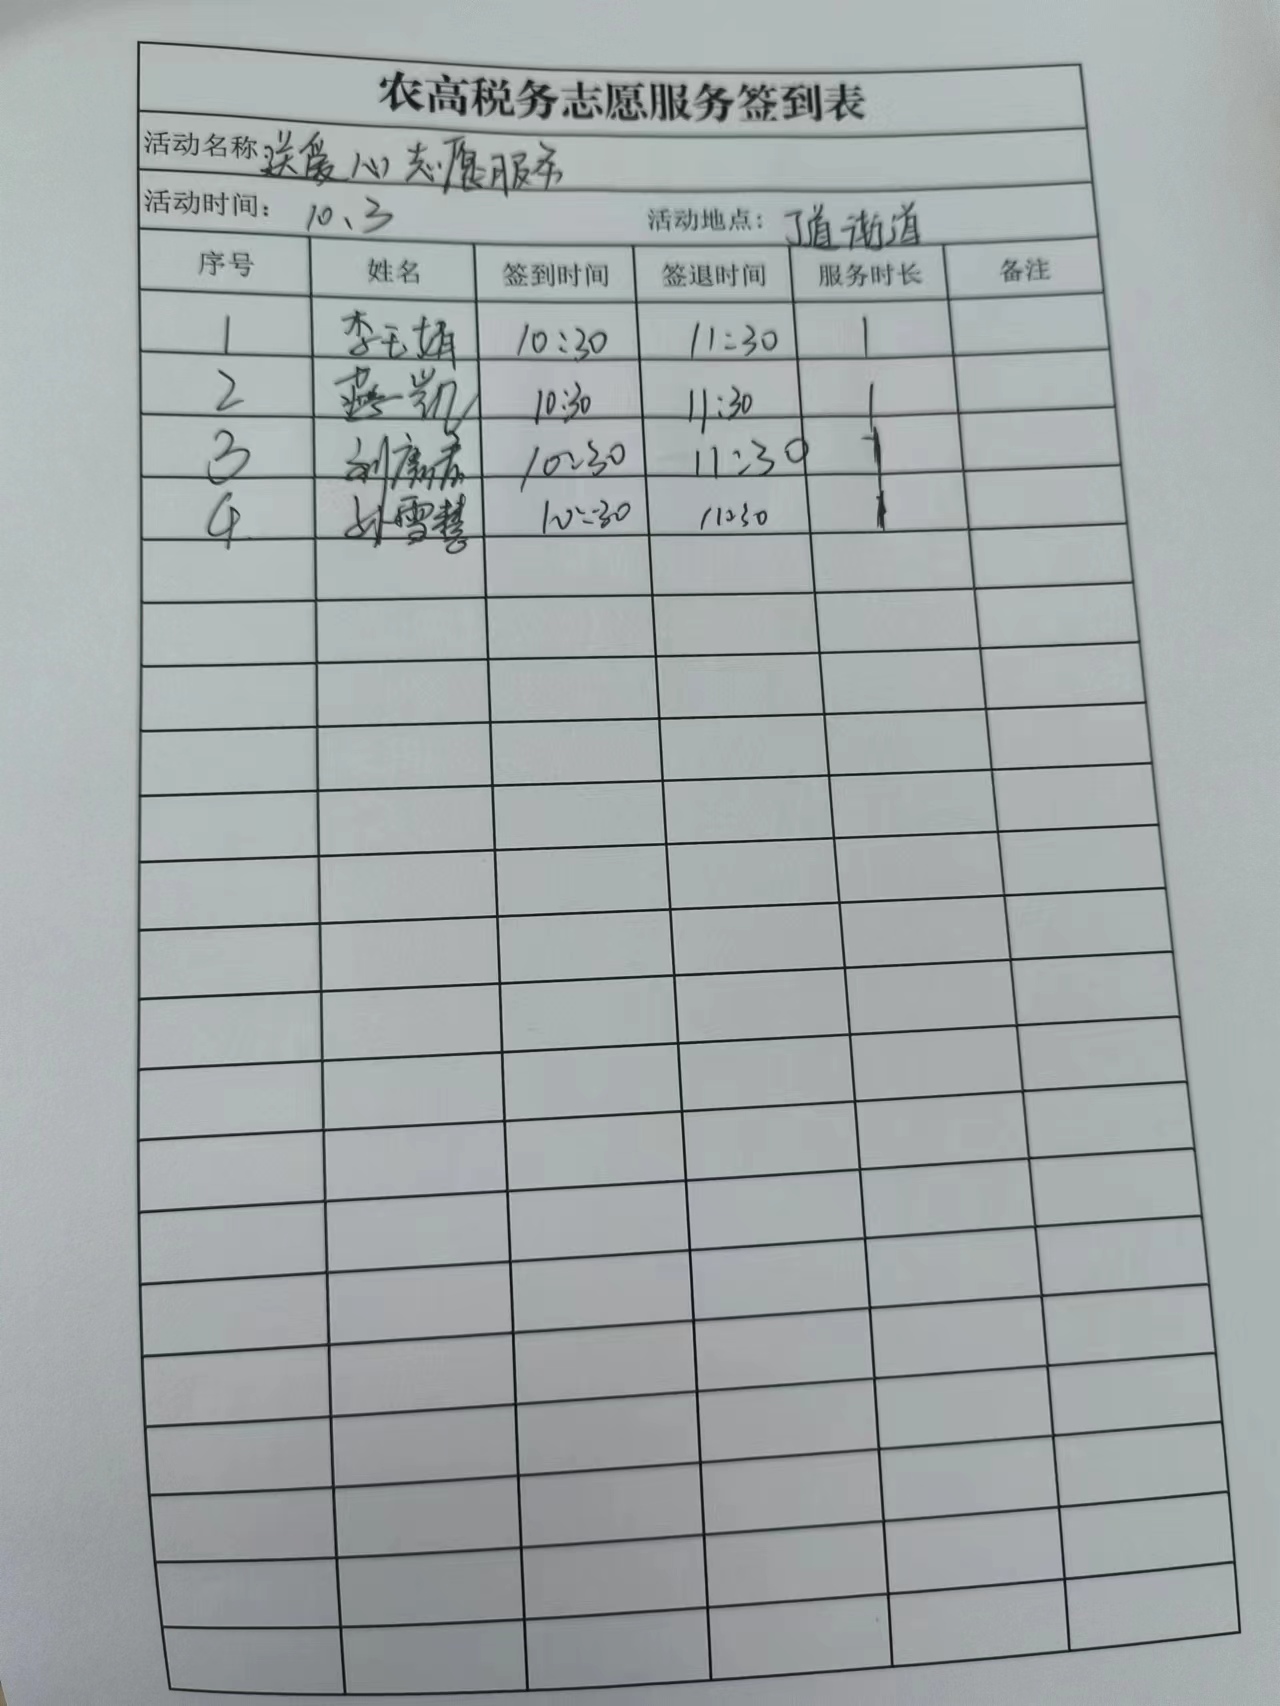 农高税务志愿服务签到表
活动名称 送爱心志愿服务
活动时间： 10、3 活动地点： 丁道街道
序号 姓名 签到时间 签退时间 服务时长 备注
1 李玉娟 10:30 11:30 1
2 燕凯 10:30 11:30 1
3 10:30 11:30 1
4 雪慧 10:30 11:30 1